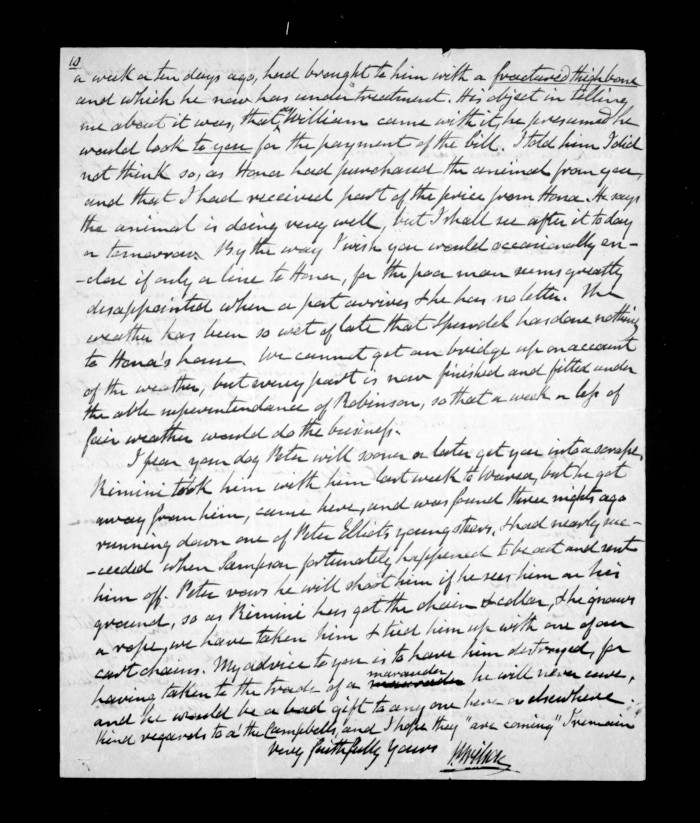 10
a week or ten days ago, had brought to him with a fractured thigh bone
and which he now has under treatment. His object in telling
me about it was, that as William came with it, he presumed he
would look to you for the payment of the bill. I told him I did
not think so, as Hona had purchased the animal from you,
and that I had received part of the price from Hona. He says
the animal is doing very well, but I shall see after it to day
or tomorrow. By the way I wish you would occasionally en-
-close if only a line to Hona, for the poor man seems greatly
disappointed when a post arrives & he has no letter. The
weather has been so wet of late that has done nothing
to Hona's house. We cannot get our bridge up on account
of the weather, but every part is now finished and fitted under
the able superintendance of Robinson, so that a week or less of
fair weather would do the business.
I fear your dog Peter will sooner or later get you into a scrape,
Rimini took him with him last week to but he got
away from him, came here, and was found three nights ago
running down one of Peter Elliots young steers, & had nearly suc-
-ceeded when Sampson fortunately happened to be out and sent
him off. Peter vows he will shoot him if he sees him on his
ground, so as Rimini has got the chain & collar, & he gnaws
a rope, we have taken him & tied him up with one of our
cart chains. My advice to you is to have him destroyed, for
having taken to the trade of a marauder he will never cure,
and he would be a bad gift to any one here or elsewhere.
Kind regards to a' the Campbells, and I hope they "are coming" I remain
very faithfully yours